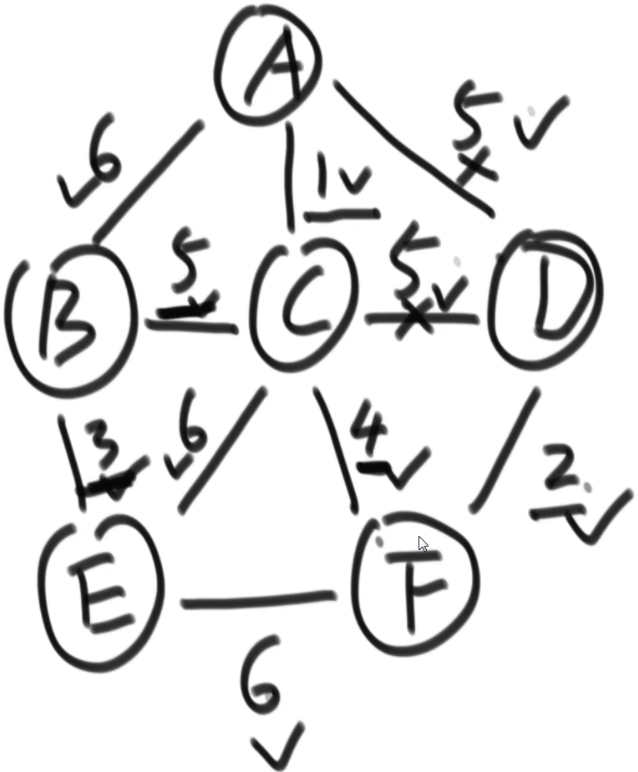 A
6
5
1
B
5
C
5
D
3
6
4
2
E
F
6